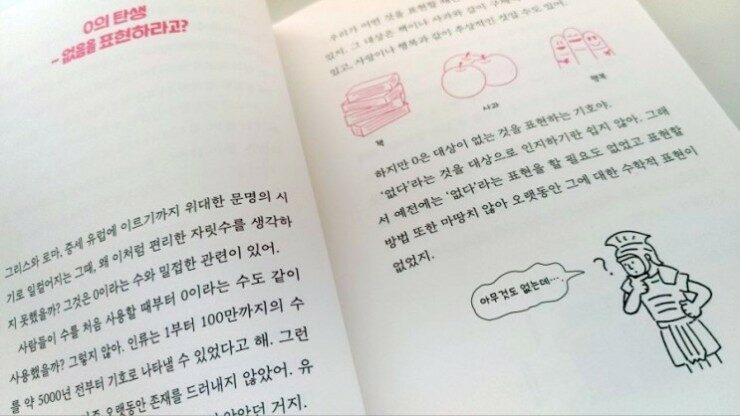 0의 탄생
- 없음을 표현하라고?
그리스와 로마, 중세 유럽에 이르기까지 위대한 문명의 시
기로 일컬어지는 그때, 왜 이처럼 편리한 자릿수를 생각하
지 못했을까? 그것은 0이라는 수와 밀접한 관련이 있어.
사람들이 수를 처음 사용할 때부터 0이라는 수도 같이
사용했을까? 그렇지 않아. 인류는 1부터 100만까지의 수
를 약 5000년 전부터 기호로 나타낼 수 있었다고 해. 그런
오랫동안 존재를 드러내지 않았어. 유
았던 거지.
우리가 어떤 것을 표현할
있지. 그 대상은 책이나 사과와 같이
있고, 사랑이나 행복과 같이 추상적인 것일 수도 있어.
책
사과
행복
하지만 0은 대상이 없는 것을 표현하는 기호야.
'없다'라는 것을 대상으로 인지하기란 쉽지 않아. 그래
서 예전에는 '없다'라는 표현을 할 필요도 없었고 표현할
방법 또한 마땅치 않아 오랫동안 그에 대한 수학적 표현이
없었지.
아무것도 없는데…
?